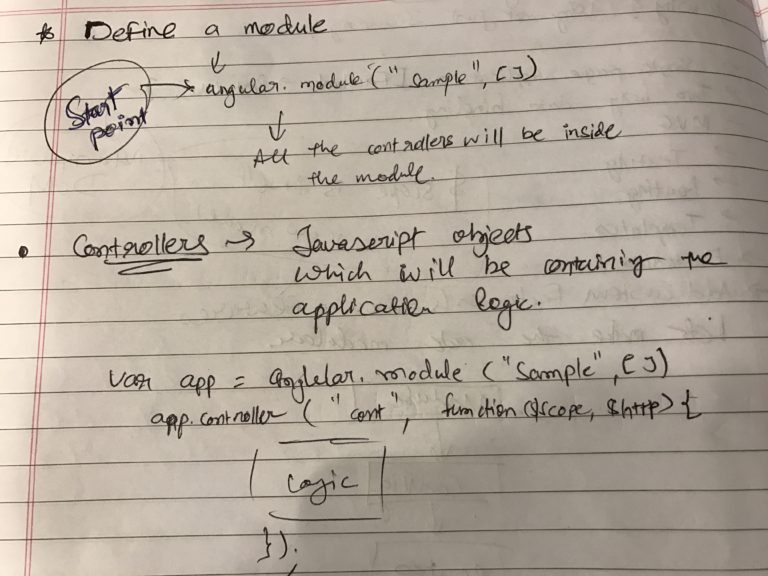 * Define a module
↓
Start point → angular.module("Sample", [])
↓
All the controllers will be inside
the module.
• Controllers → Javascript objects
which will be containing the
application logic.
Var app = anglelar.module ("Sample", [])
app.controller ("cont", function ($scope, $http) {
Logic
});